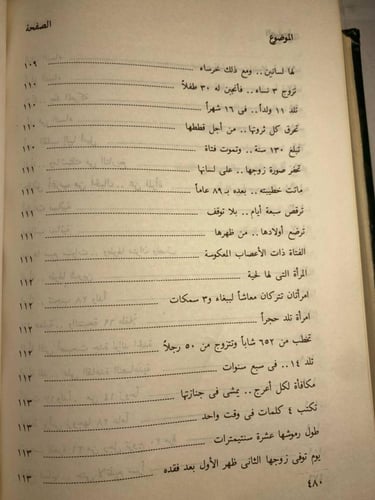 الموضوع الصفحة
لها لسانين.. ومع ذلك خرساء ١٠٩
تزوج ٣ نساء.. فأنجبن له ٣٠ طفلاً ١١٠
تلد ١١ ولداً.. فى ١٦ شهراً ١١٠
تحرق كل ثروتها.. من أجل قططها ١١٠
تبلغ ١٣٠ سنة.. وتموت فتاة ١١٠
تحفر صورة زوجها.. على لسانها ١١٠
ماتت خطيبته.. بعده بـ ٨٩ عاماً ١١١
ترقص سبعة أيام.. بلا توقف ١١١
ترضع أولادها.. من ظهرها ١١١
الفتاة ذات الأعصاب المعكوسة ١١١
المرأة التى لها لحية ١١٢
امرأتان تتركان معاشاً لببغاء و٣ سمكات ١١٢
امرأة تلد حجراً ١١٢
تخطب من ٦٥٢ شاباً وتتزوج من ٥٠ رجلاً ١١٢
تلد ١٤.. فى سبع سنوات ١١٢
مكافأة لكل أعرج.. يمشى فى جنازتها ١١٣
تكتب ٤ كلمات فى وقت واحد ١١٣
طول رموشها عشرة سنتيمترات ١١٣
يوم توفى زوجها الثانى ظهر الأول بعد فقده ١١٣
٤٨٠